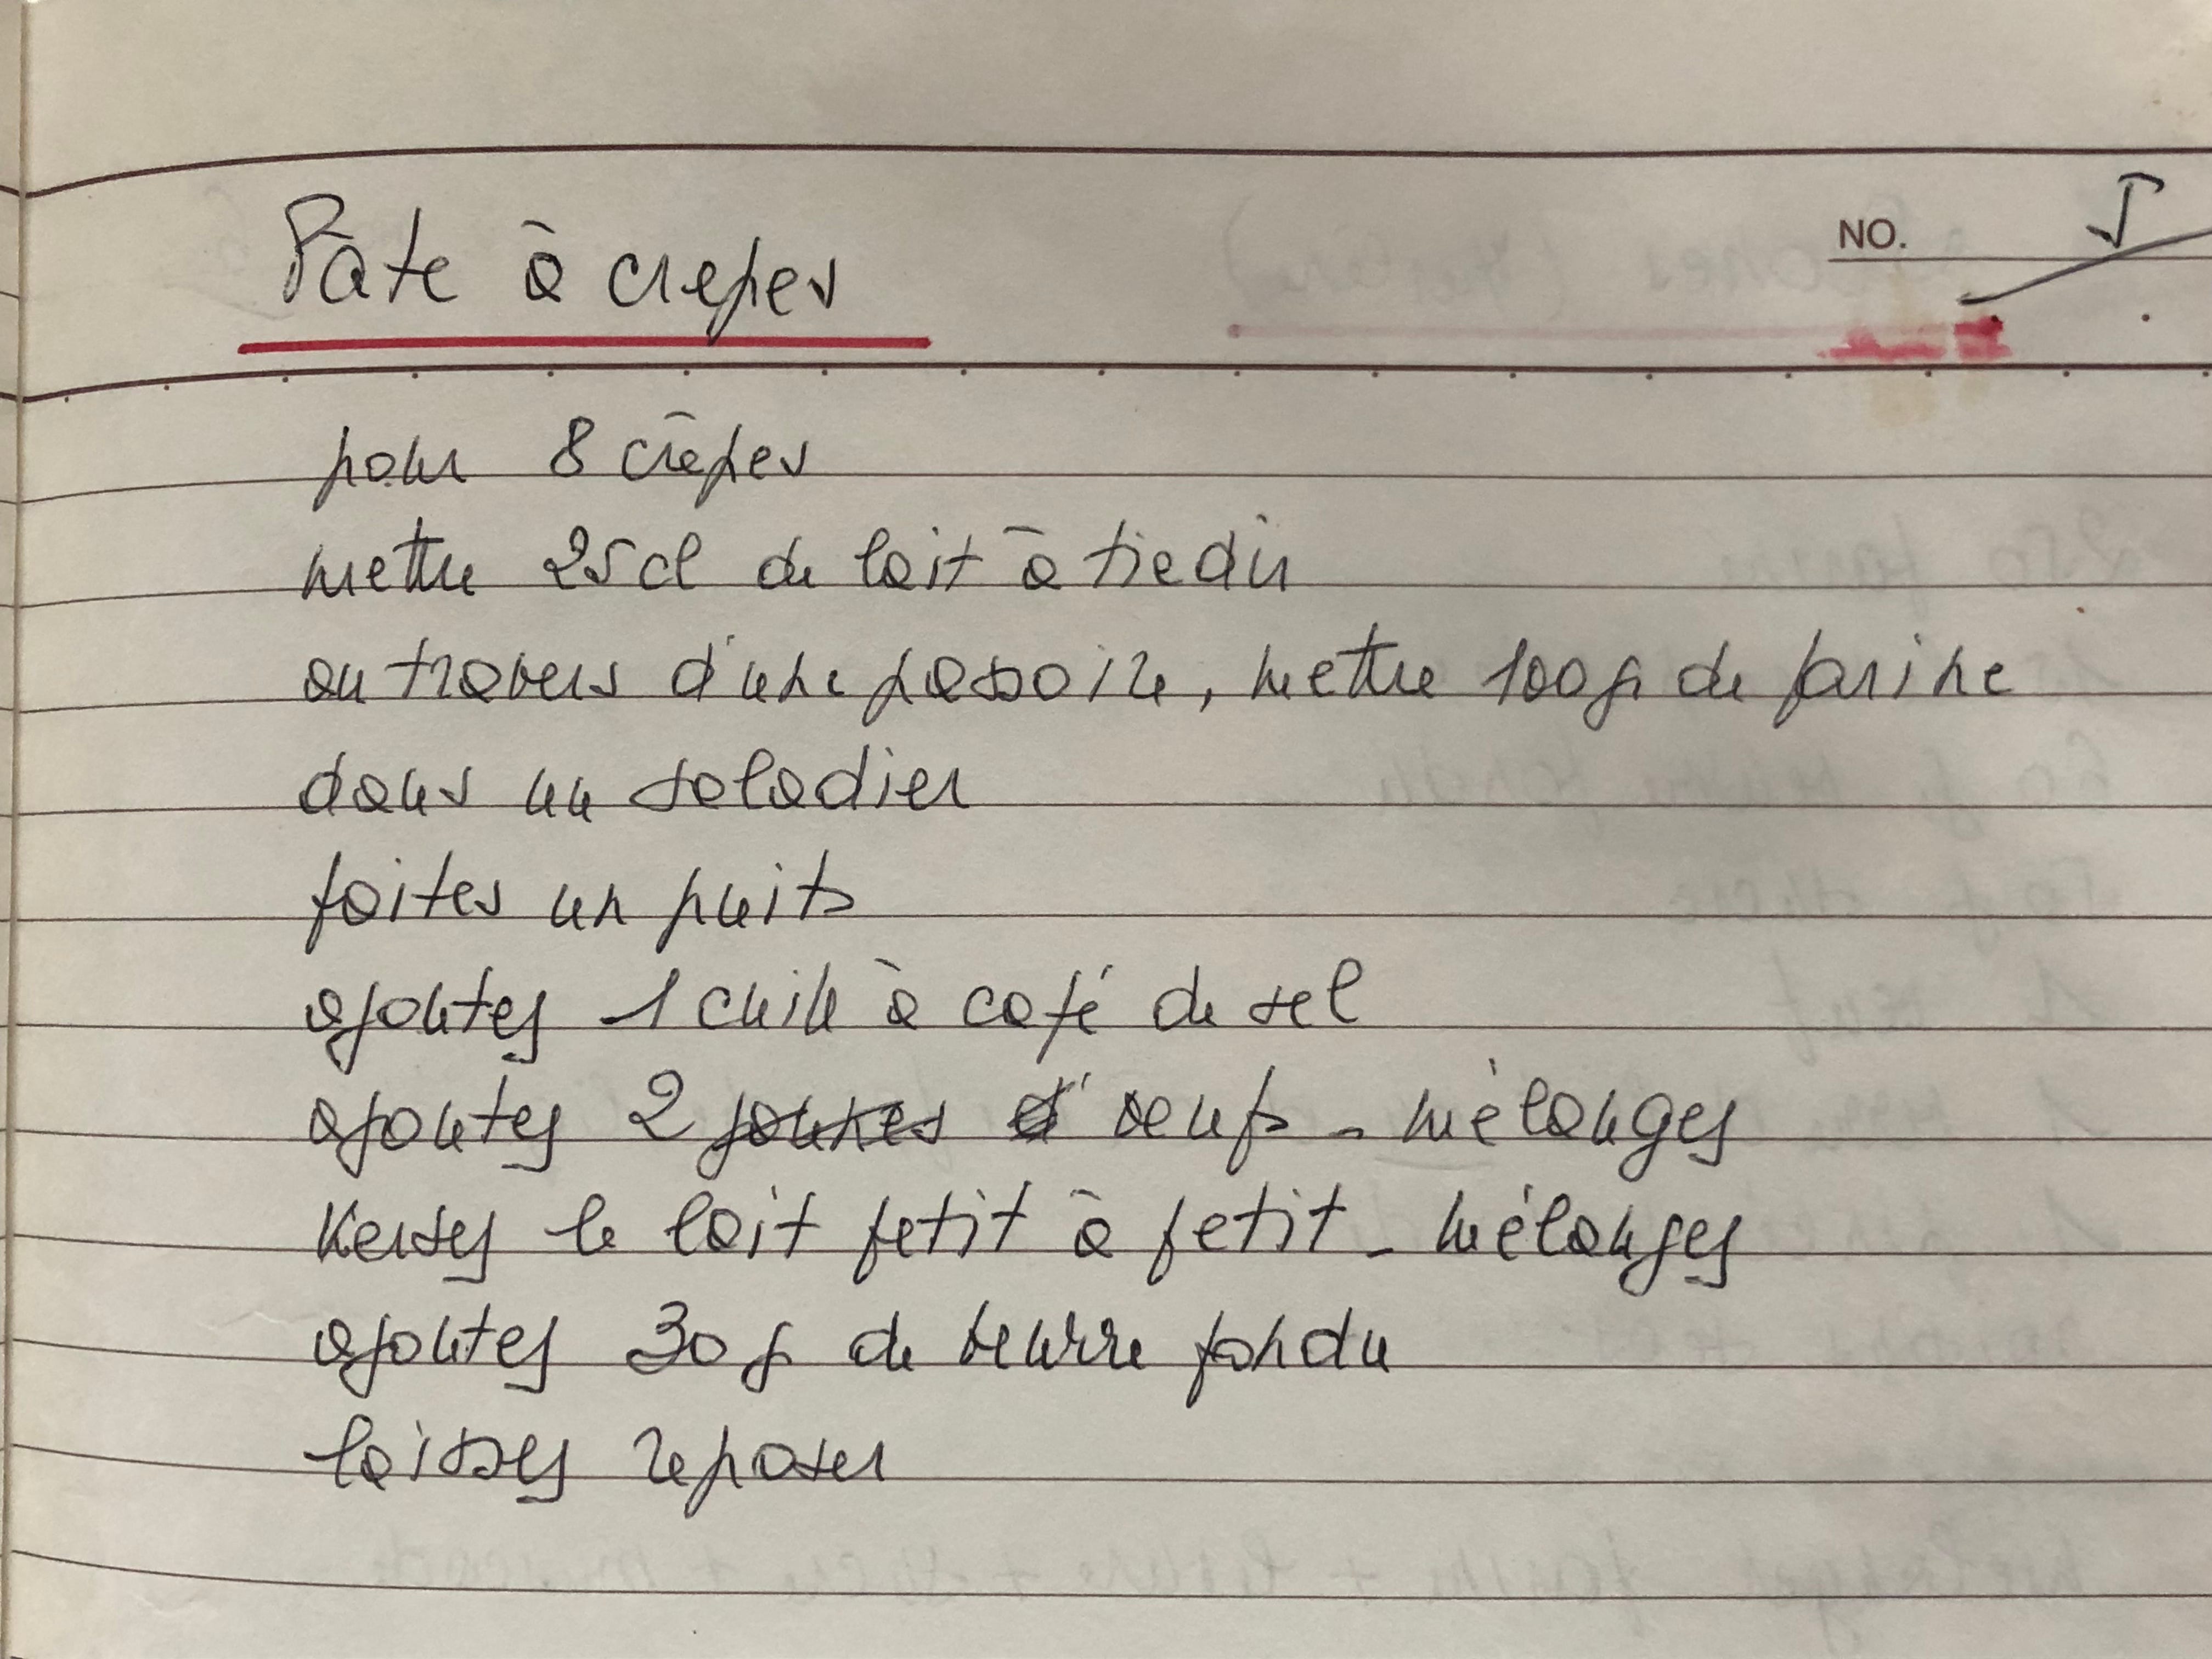 Pate à crepes
NO. 5
pour 8 crêpes
mettre 25 cl de lait à tiedir
au travers d'une passoire, mettre 100 g de farine
dans un saladier
faites un puits
ajoutez 1 cuile à café de sel
ajoutez 2 jaunes d' oeufs - mélangez
Versez le lait petit à petit - mélangez
ajoutez 30 g de beurre fondu
laissez reposer